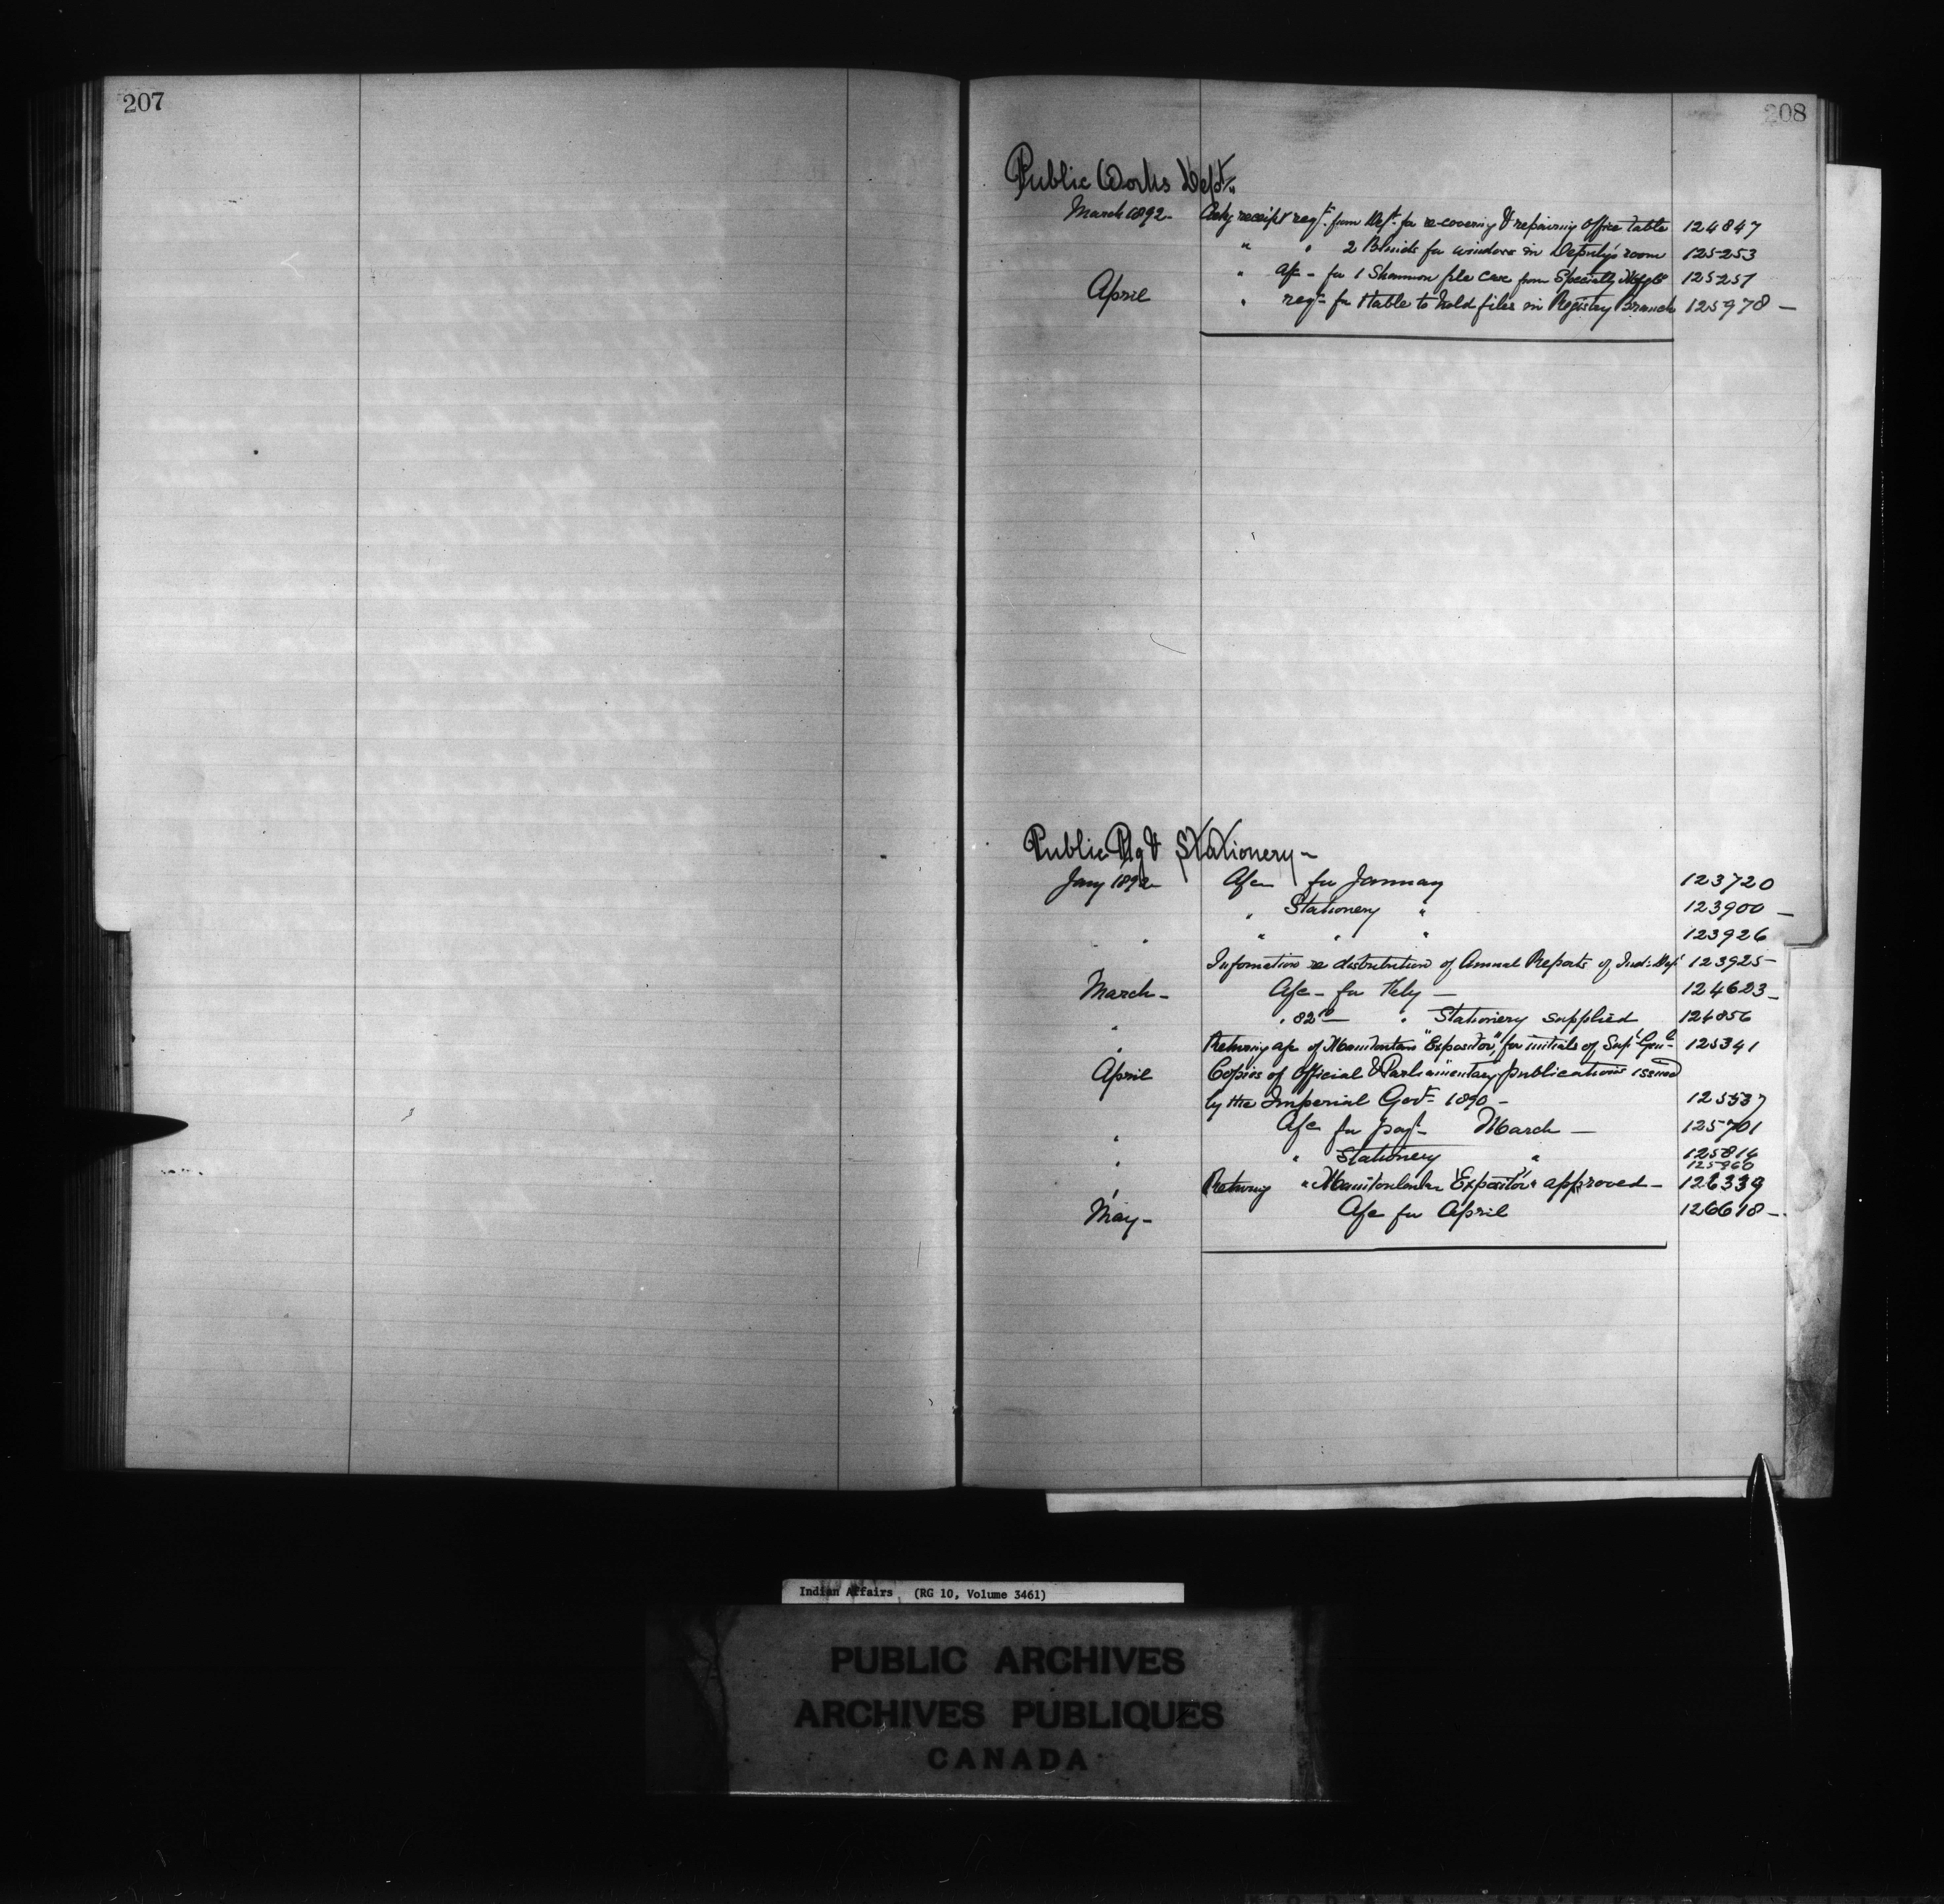 207
208
Public Works Dept.
March 1892 - Ackg receipt reqt. from Dept. for re-covering & repairing office table 124847
" " 2 Blinds for windows in Deputy's room 125253
" a/c - for 1 Shannon file case from Specialty 125251
April " reqt - for 1 table to hold files in Registry Branch 125978 -
Public Ptg & Stationery -
Jany 1892 - A/c for January 123720
" Stationery " 123900 -
" " " " 123926
Information re distribution of Annual Reports of Ind: Dept 123925 -
March - A/c - for Feby - 124623 -
" " 82 - " Stationery supplied 124856
" Returning a/c of Manitoulin "Expositor", for initials of Supt Genl 125341
April Copies of Official & Parliamentary publications issued
by the Imperial Govt - 1890 - 125537
" A/c for payt - March - 125701
" " Stationery " 125814
125860
" Returning " Manitoulin Expositor " approved - 126339
May - A/c for April 126618 -
Indian Affairs (RG 10, Volume 3461)
PUBLIC ARCHIVES
ARCHIVES PUBLIQUES
CANADA